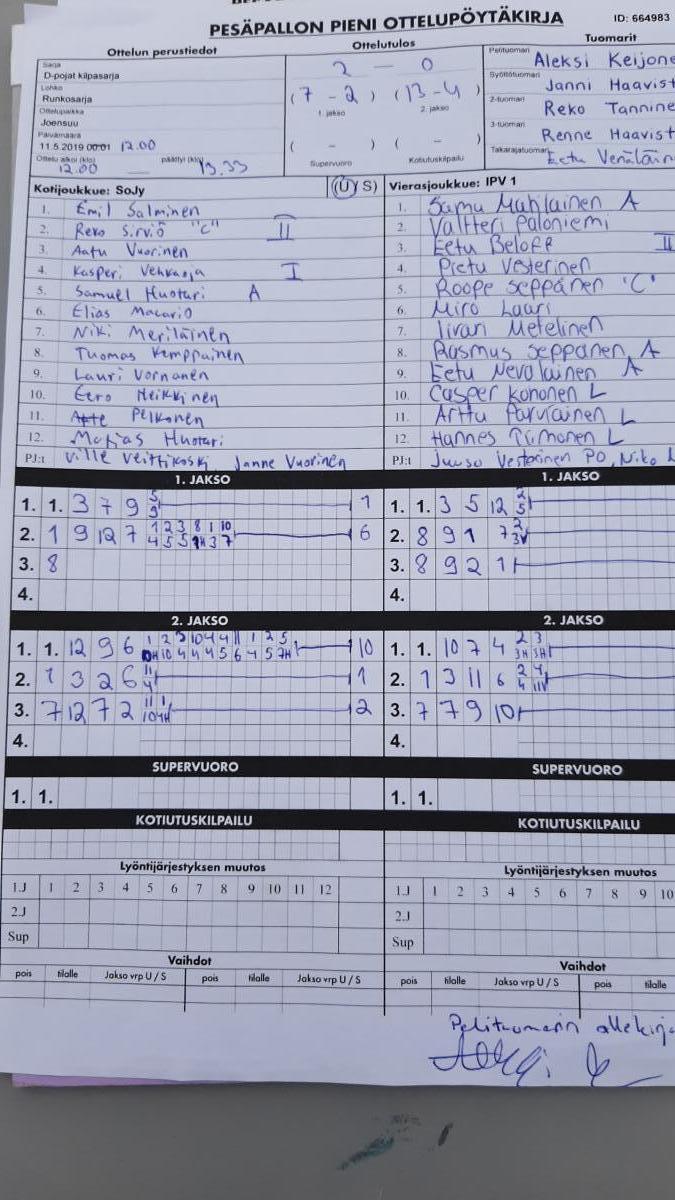 PESÄPALLON PIENI OTTELUPÖYTÄKIRJA
ID: 664983
Ottelun perustiedot
Sarja
D-pojat kilpasarja
Lohko
Runkosarja
Ottelupaikka
Joensuu
Päivämäärä
11.5.2019 00:01 12.00
Ottelu alkoi (klo) päättyi (klo)
12.00 — 13.33
Ottelutulos
2 - 0
(7 - 2) (13 - 4)
1. jakso 2. jakso
( - ) ( - )
Supervuoro Kotiutuskilpailu
Tuomarit
Pelituomari
Aleksi Keijone
Syöttötuomari
Janni Haavist
2-tuomari
Reko Tannine
3-tuomari
Renne Haavist
Takarajatuomari
Eetu Venäläin
Kotijoukkue: SoJy (U S)
1. Emil Salminen
2. Reko Sirviö "C" II
3. Aatu Vuorinen
4. Kasperi I
5. Samuel Huotari A
6. Elias Macario
7. Niki Meriläinen
8. Tuomas Kemppainen
9. Lauri Vornanen
10. Eero Heikkinen
11. Atte Pelkonen
12. Matias Huotari
PJ:t Ville Janne Vuorinen
Vierasjoukkue: IPV 1
1. Samu A
2. Valtteri Paloniemi
3. Eetu Beloff II
4. Pietu Vesterinen
5. Roope Seppänen "C"
6. Miro Laari
7. Iivari Metelinen
8. Rasmus Seppänen A
9. Eetu Nevalainen A
10. Casper Kononen L
11. Arttu Parviainen L
12. Hannes Timonen L
PJ:t Juuso Vesterinen PO, Niko
1. JAKSO
1. 1. 3 7 9 5 9 1
2. 1 9 12 7 1 2 3 8 1 10 6
3. 8
4.
1. JAKSO
1. 1. 3 5 12 2 5
2. 8 9 1 7 2
3. 8 9 2 1
4.
2. JAKSO
1. 1. 12 9 6 10
2. 1 3 2 6 11 4 1
3. 7 12 7 2 11 1 2
4.
2. JAKSO
1. 1. 10 7 4 2 3
2. 1 3 11 6 2 4
3. 7 7 9 10
4.
SUPERVUORO
1. 1.
SUPERVUORO
1. 1.
KOTIUTUSKILPAILU
KOTIUTUSKILPAILU
Lyöntijärjestyksen muutos
1.J 1 2 3 4 5 6 7 8 9 10 11 12
2.J
Sup
Lyöntijärjestyksen muutos
1.J 1 2 3 4 5 6 7 8 9 10
2.J
Sup
Vaihdot
pois tilalle Jakso vrp U / S pois tilalle Jakso vrp U / S
Vaihdot
pois tilalle Jakso vrp U / S pois tilalle
Pelituomarin allekirj